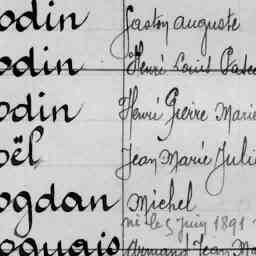 odin Gaston Auguste
odin Henri Louis Pasc
odin Henri Pierre Marie
oël Jean Marie Juli
ogdan Michel
né le 5 Juin 1891
oguais Armand Jean Ma